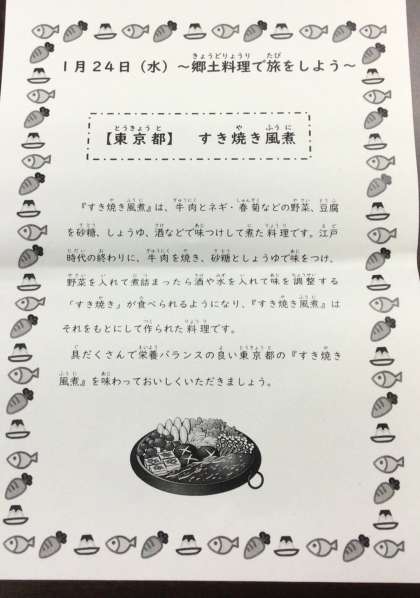 1月24日（水）～郷土料理で旅をしよう～
【東京都】 すき焼き風煮
『すき焼き風煮』は、牛肉とネギ・春菊などの野菜、豆腐
を砂糖、しょうゆ、酒などで味つけして煮た料理です。江戸
時代の終わりに、牛肉を焼き、砂糖としょうゆで味をつけ、
野菜を入れて煮詰まったら酒や水を入れて味を調整する
「すき焼き」が食べられるようになり、『すき焼き風煮』は
それをもとにして作られた料理です。
具だくさんで栄養バランスの良い東京都の『すき焼き
風煮』を味わっておいしくいただきましょう。